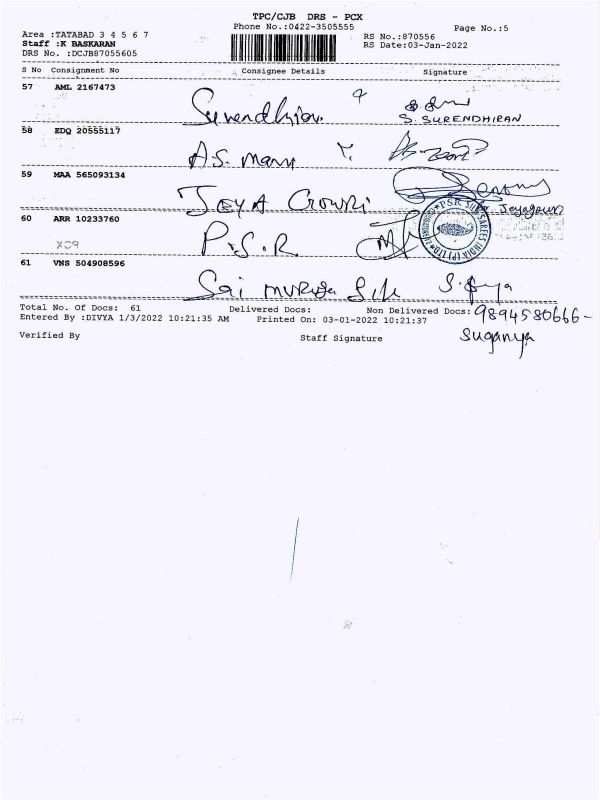 TPC/CJB DRS - PCX
Phone No.:0422-3505555
Page No.:5
Area :TATABAD 3 4 5 6 7
RS No.:870556
Staff :K BASKARAN
RS Date:03-Jan-2022
DRS No. :DCJB87055605
S No Consignment No Consignee Details Signature
57 AML 2167473
Surendhiran
S. SURENDHIRAN
58 EDQ 20555117
A.S. Mani
59 MAA 565093134
Jeya Gowri
Jeyagowri
60 ARR 10233760
P.S.R
PSR SILK SAREES INDIA (P) LTD
61 VNS 504908596
Sai Muruga Silk
Total No. Of Docs: 61 Delivered Docs: Non Delivered Docs:
9894580666-
Entered By :DIVYA 1/3/2022 10:21:35 AM Printed On: 03-01-2022 10:21:37
Suganya
Verified By Staff Signature